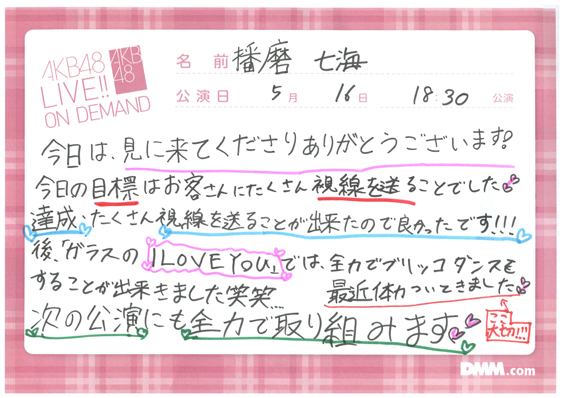 AKB48
LIVE!!
ON DEMAND
AKB
48
名 前 播磨 七海
公演日 5月 16日 18:30 公演
今日は、見に来てくださりありがとうございます!
今日の目標はお客さんにたくさん視線を送ることでした
達成:たくさん視線を送ることが出来たので良かったです!!!
後、「ガラスの I LOVE YOU」では、全力でブリッコダンスを
することが出来きました笑笑... 最近体力ついてきました
次の公演にも全力で取り組みます
ここ
大切!!!
DMM.com